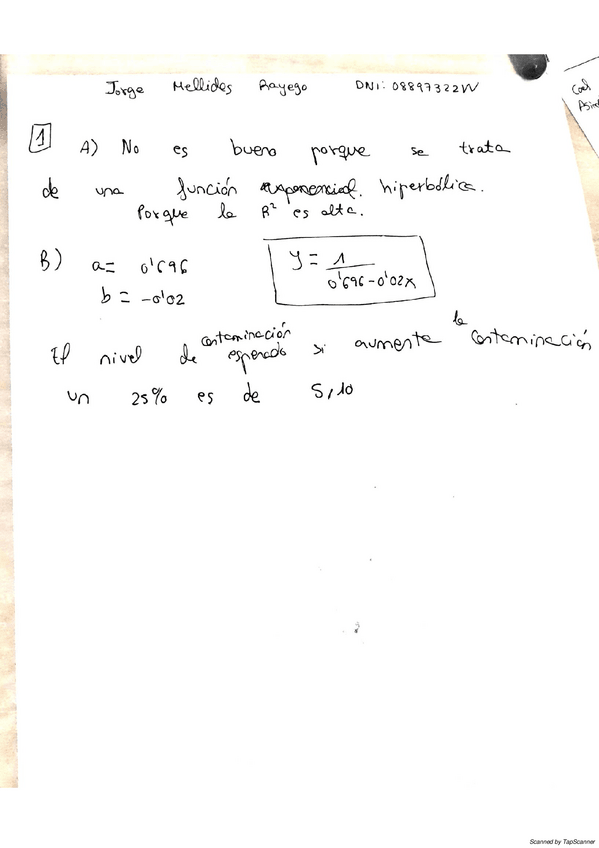 Jorge Mellides Rayego DNI: 08897322W
Coef
Asim
1 A) No es bueno porque se trata
de una función exponencial. hiperbólica.
Porque la R² es alta.
B) a= 0'696
b = -0'02
y = 1 / 0'696-0'02x
El nivel de contaminación esperado si aumenta la contaminación
un 25% es de 5,10
Scanned by TapScanner